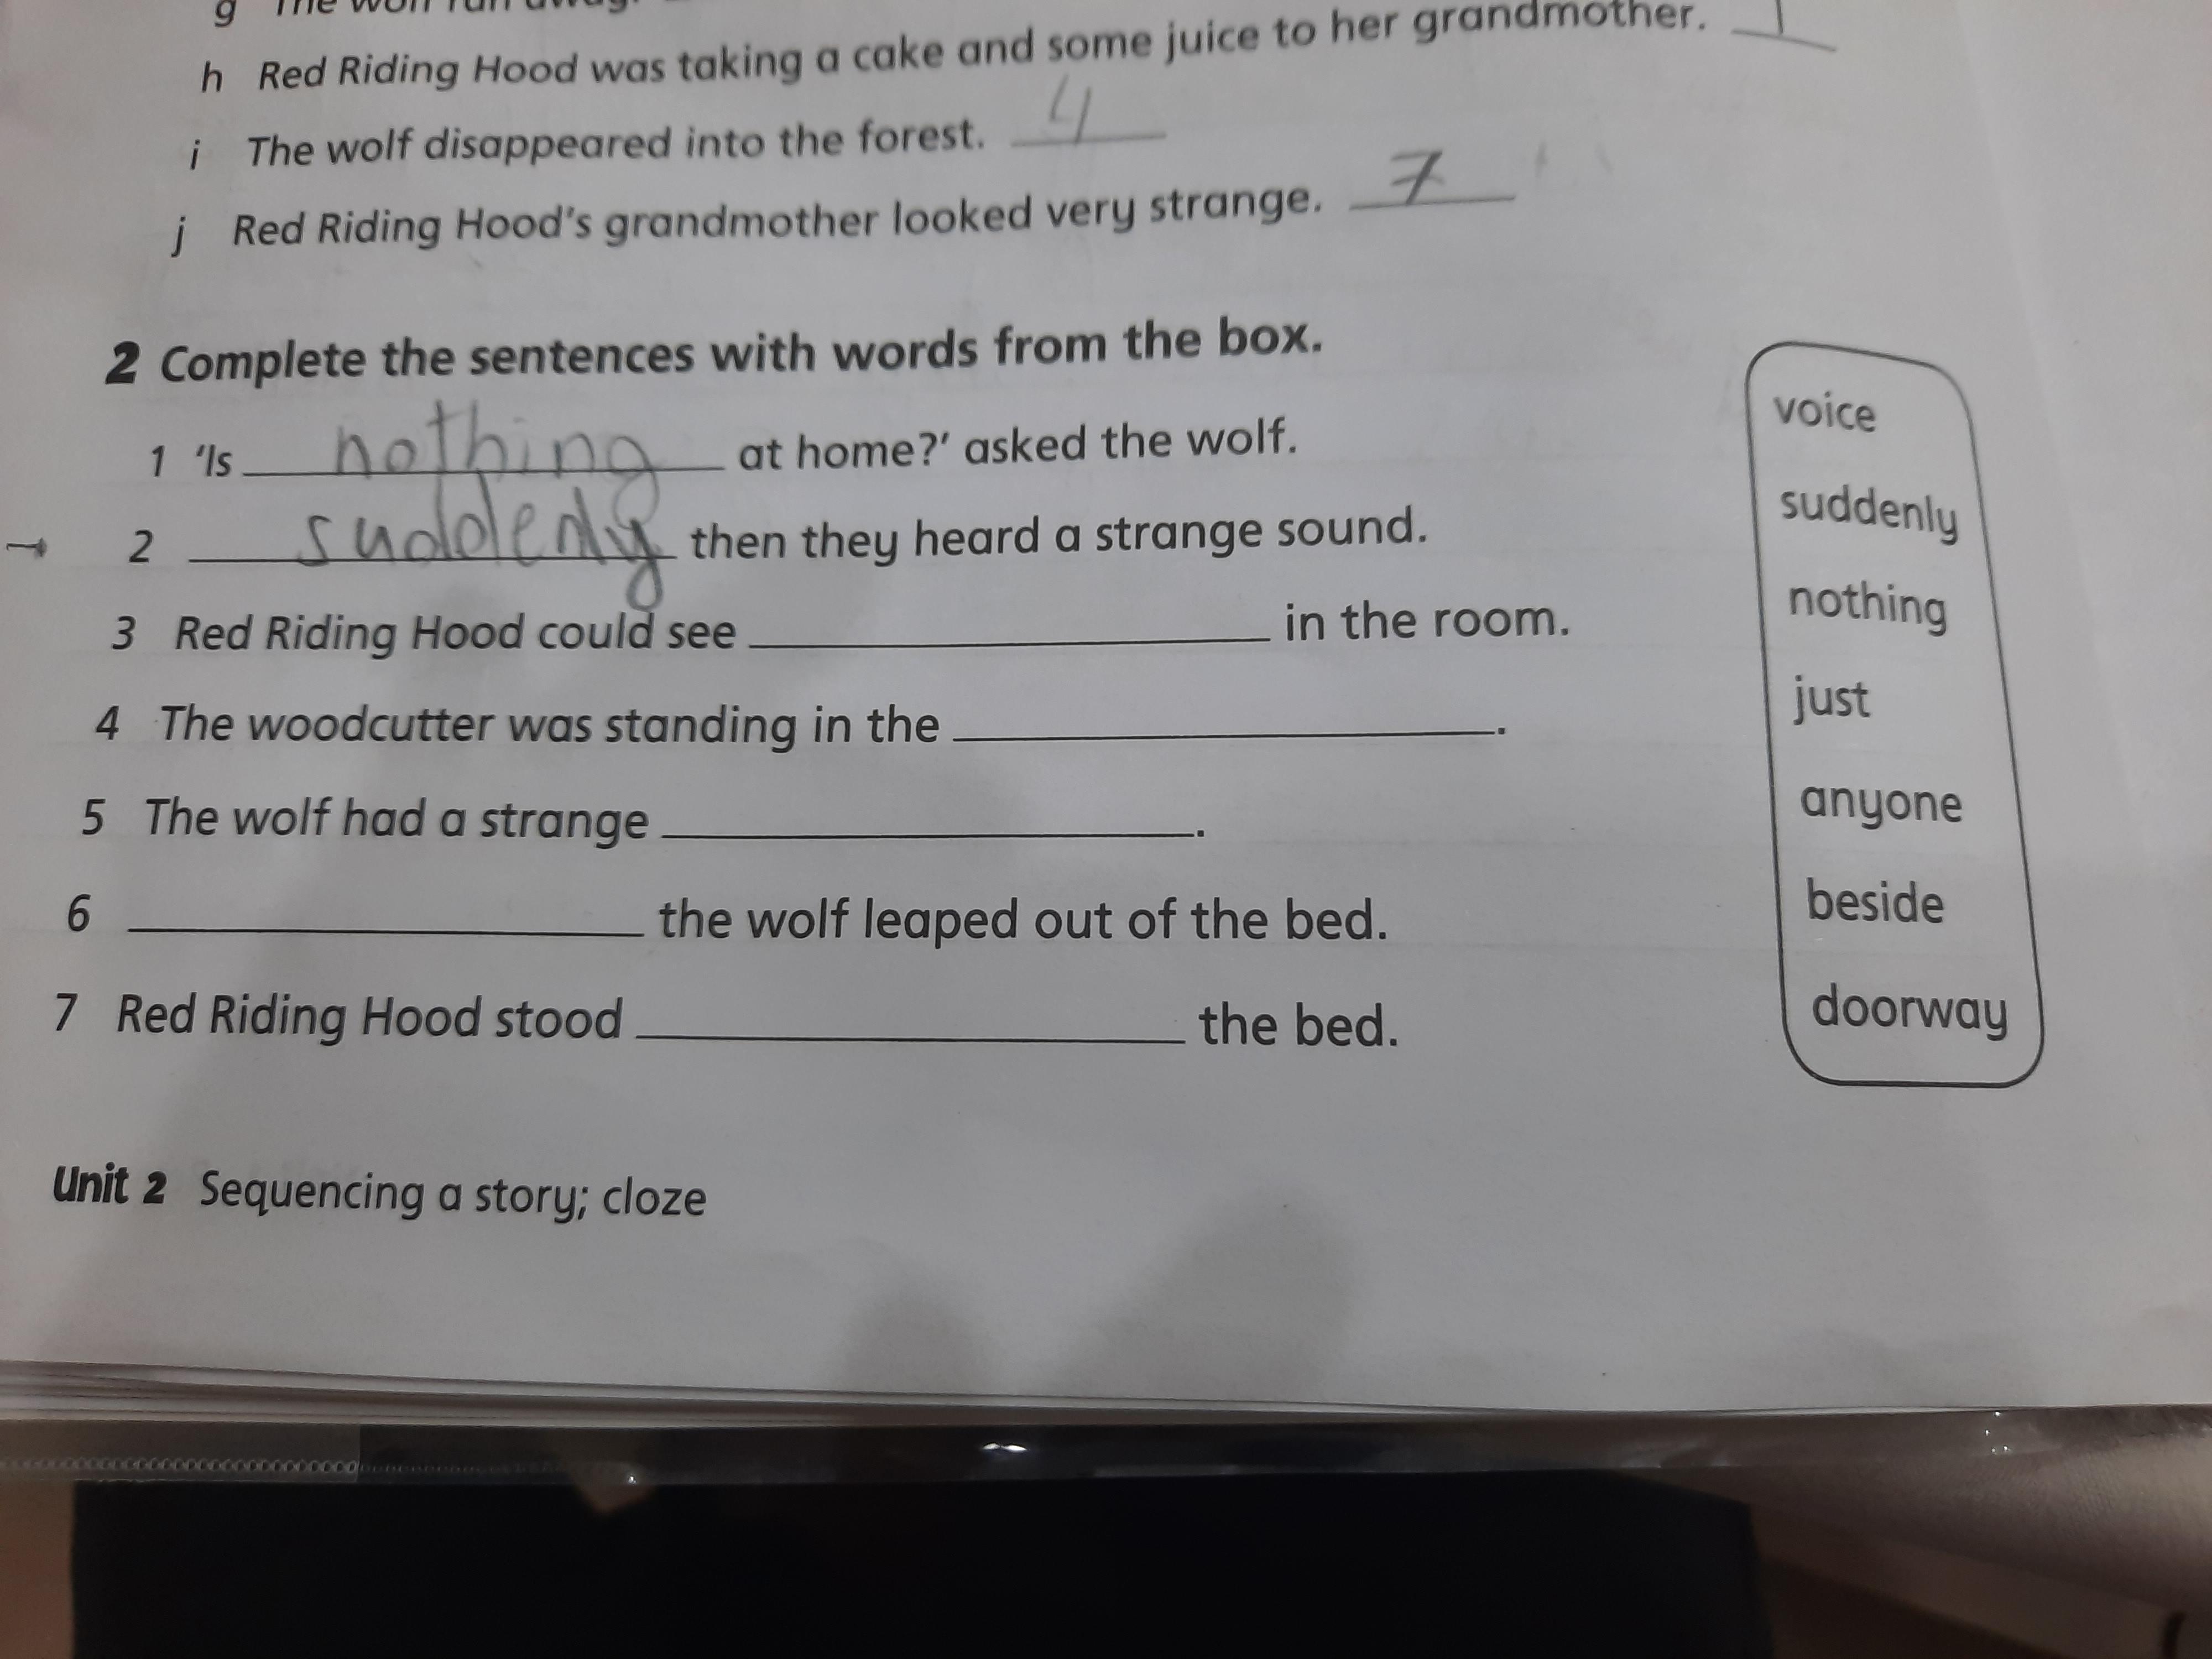 g The wolf ran away.
h Red Riding Hood was taking a cake and some juice to her grandmother. 1
i The wolf disappeared into the forest. 4
j Red Riding Hood's grandmother looked very strange. 7
2 Complete the sentences with words from the box.
1 'Is nothing at home?' asked the wolf.
→ 2 suddenly then they heard a strange sound.
3 Red Riding Hood could see ________ in the room.
4 The woodcutter was standing in the ________.
5 The wolf had a strange ________.
6 ________ the wolf leaped out of the bed.
7 Red Riding Hood stood ________ the bed.
voice
suddenly
nothing
just
anyone
beside
doorway
Unit 2 Sequencing a story; cloze